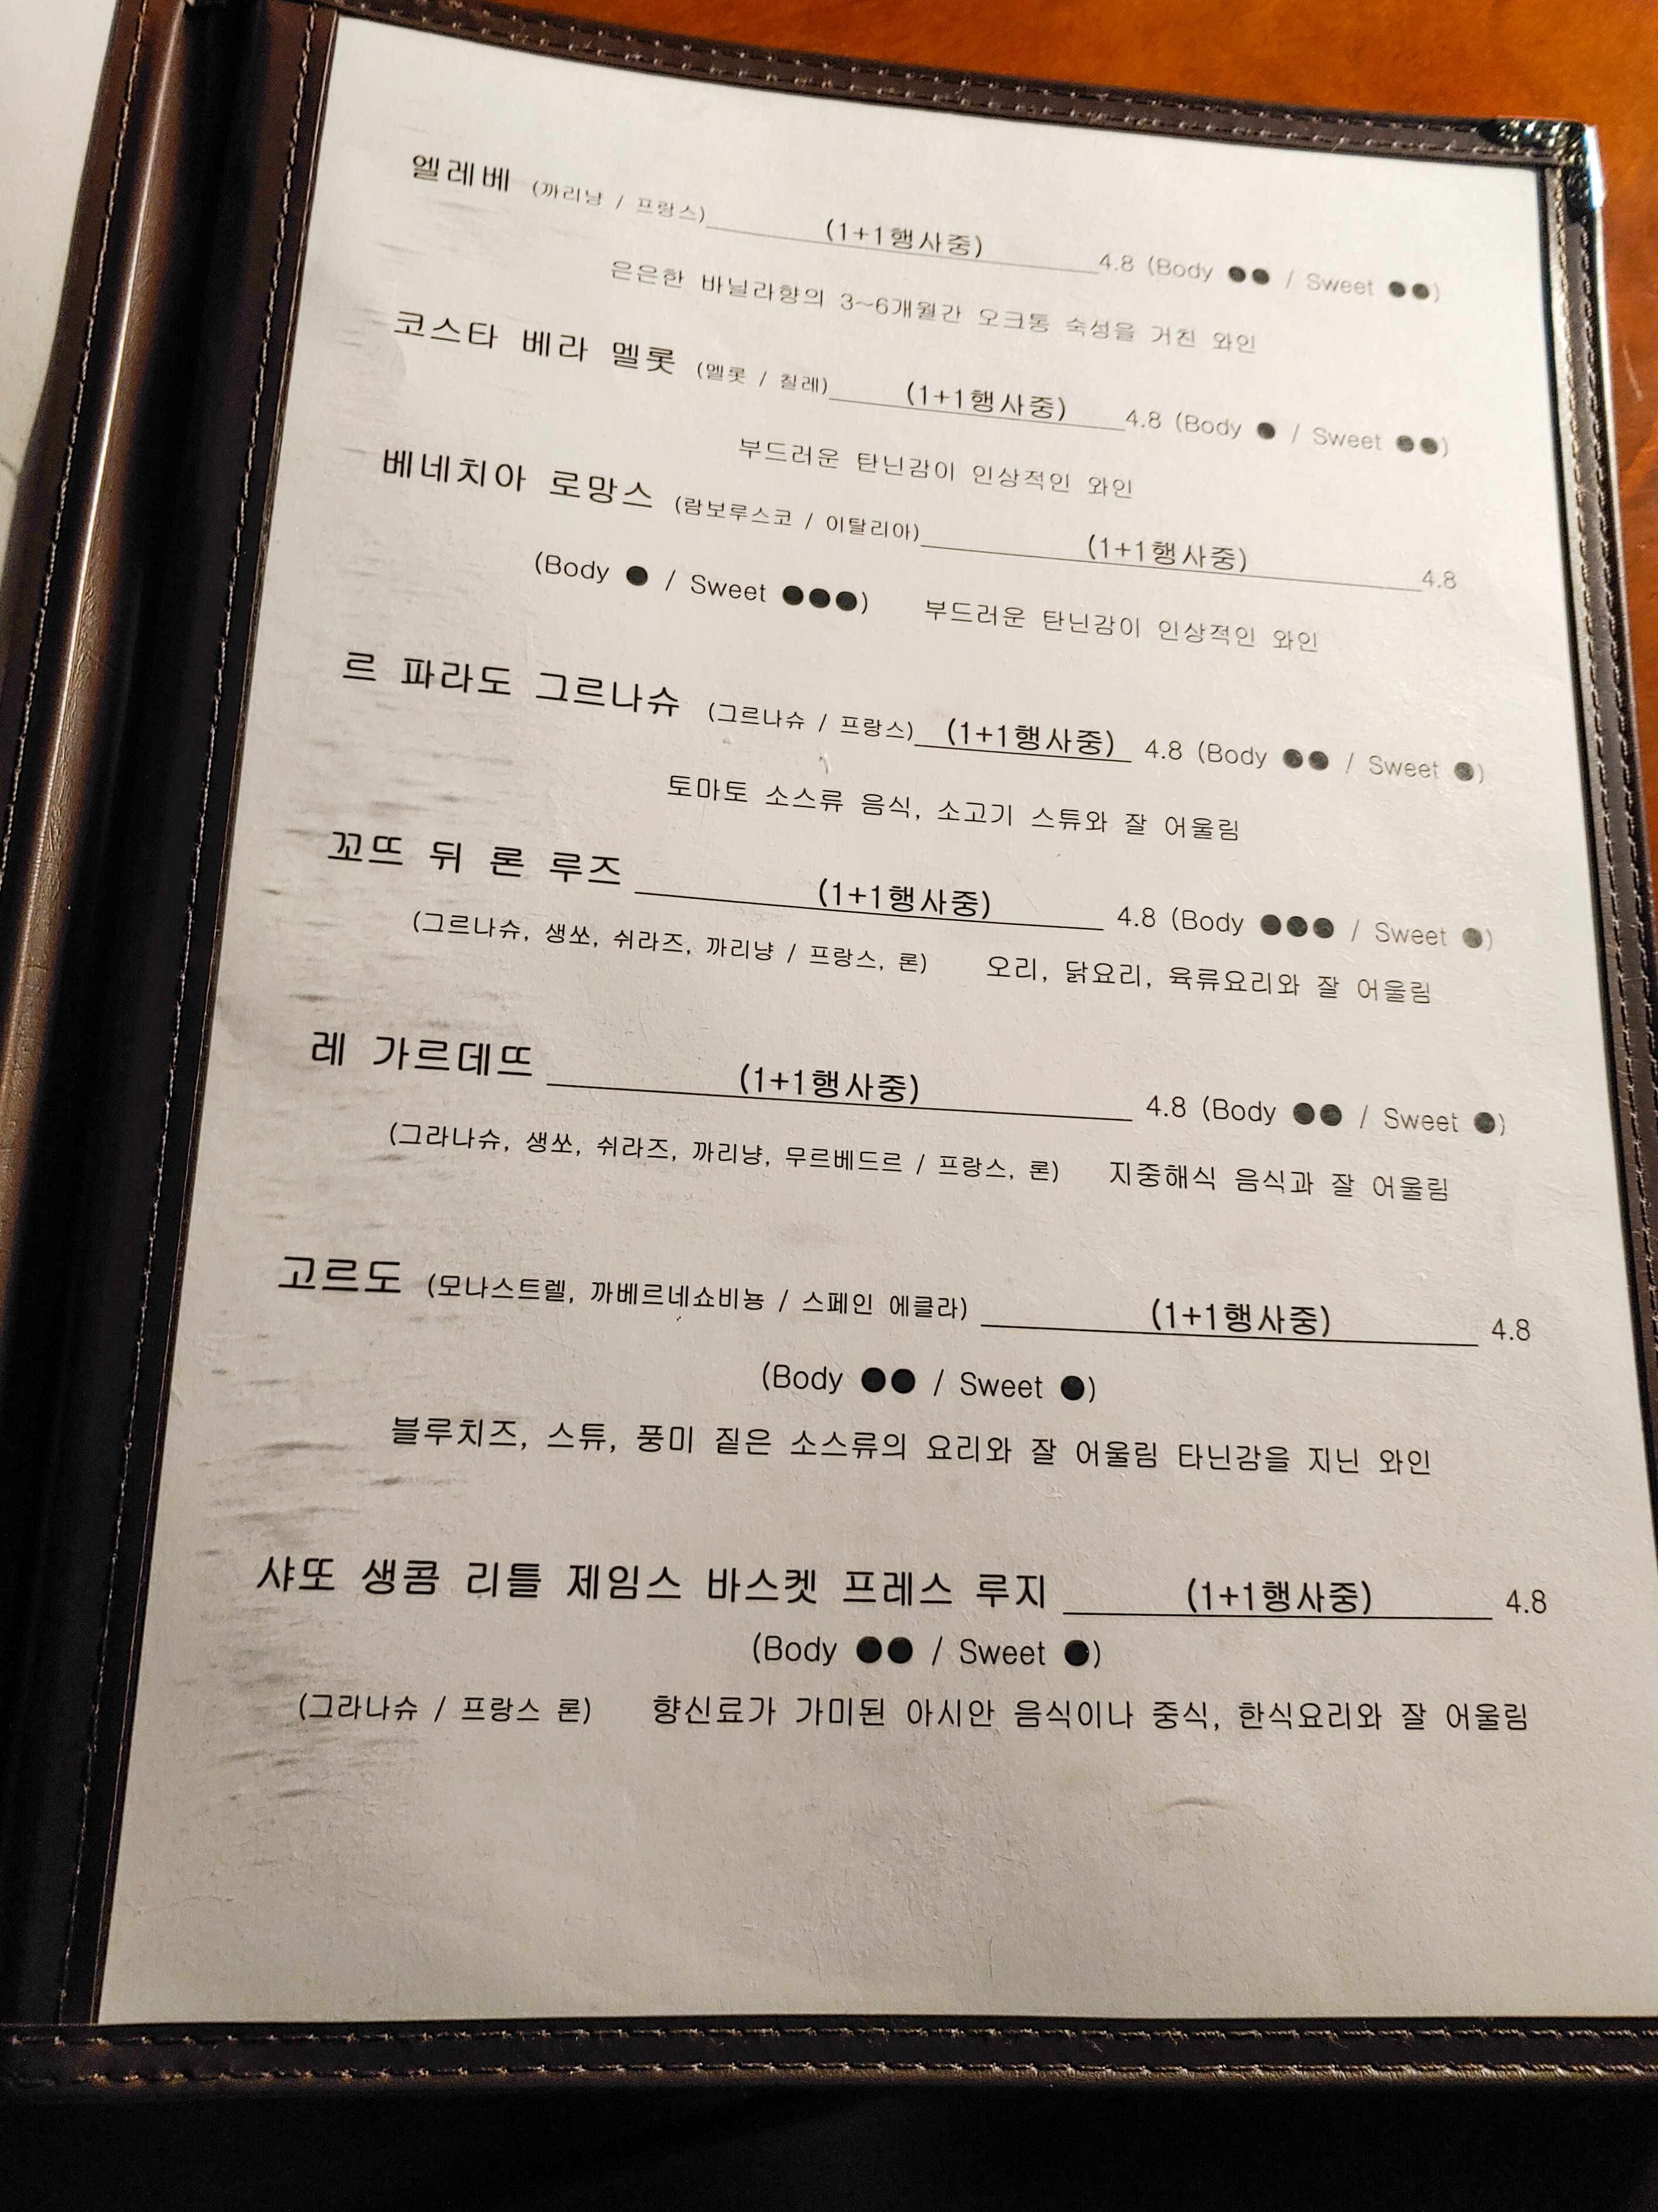 엘레베 (까리냥 / 프랑스) (1+1행사중) 4.8 (Body ●● / Sweet ●●)
은은한 바닐라향의 3~6개월간 오크통 숙성을 거친 와인
코스타 베라 멜롯 (멜롯 / 칠레) (1+1행사중) 4.8 (Body ● / Sweet ●●)
부드러운 탄닌감이 인상적인 와인
베네치아 로망스 (람보루스코 / 이탈리아) (1+1행사중) 4.8
(Body ● / Sweet ●●●) 부드러운 탄닌감이 인상적인 와인
르 파라도 그르나슈 (그르나슈 / 프랑스) (1+1행사중) 4.8 (Body ●● / Sweet ●)
토마토 소스류 음식, 소고기 스튜와 잘 어울림
꼬뜨 뒤 론 루즈 (1+1행사중) 4.8 (Body ●●● / Sweet ●)
(그르나슈, 생쏘, 쉬라즈, 까리냥 / 프랑스, 론) 오리, 닭요리, 육류요리와 잘 어울림
레 가르데뜨 (1+1행사중) 4.8 (Body ●● / Sweet ●)
(그라나슈, 생쏘, 쉬라즈, 까리냥, 무르베드르 / 프랑스, 론) 지중해식 음식과 잘 어울림
고르도 (모나스트렐, 까베르네쇼비뇽 / 스페인 에클라) (1+1행사중) 4.8
(Body ●● / Sweet ●)
블루치즈, 스튜, 풍미 짙은 소스류의 요리와 잘 어울림 타닌감을 지닌 와인
샤또 생콤 리틀 제임스 바스켓 프레스 루지 (1+1행사중) 4.8
(Body ●● / Sweet ●)
(그라나슈 / 프랑스 론) 향신료가 가미된 아시안 음식이나 중식, 한식요리와 잘 어울림